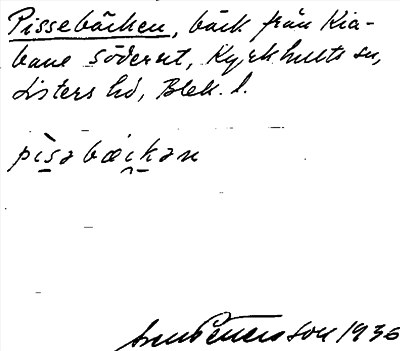 Pissebäcken, bäck från Kia-
bane söderut, Kyrkhults sn,
Listers hd, Blek. l.
pìsəbæckən
Sven Petersson 1936